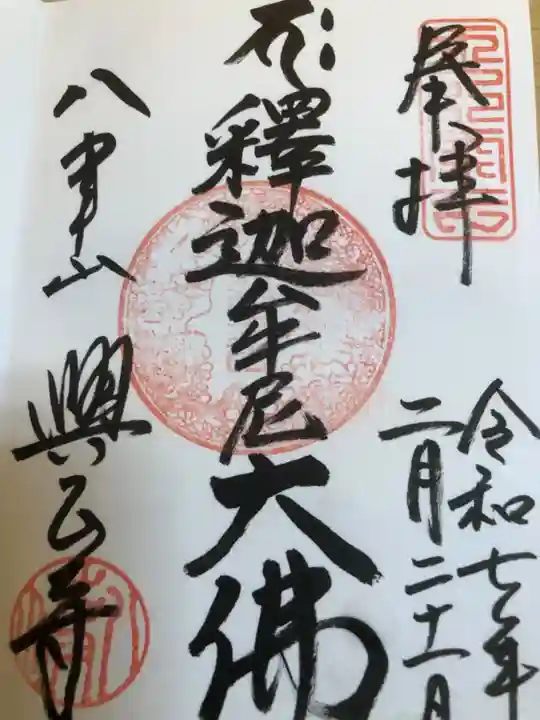 奉拝
令和七年
二月二十一日
釋迦牟尼大佛
八事山 興正寺